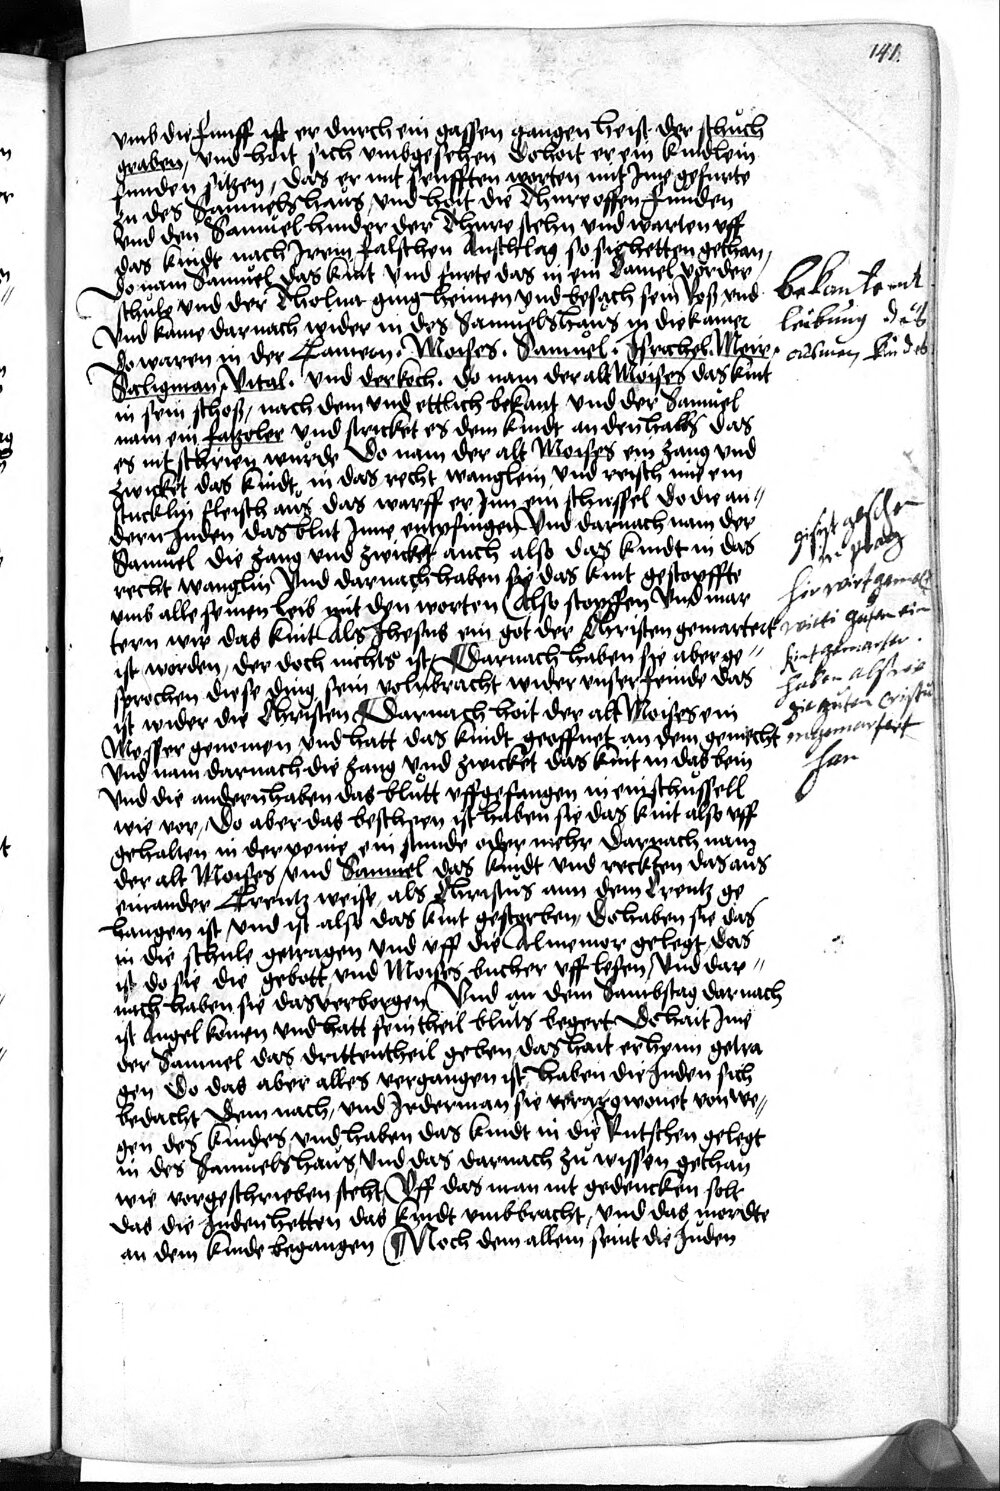 141.
vmb die funff ist er durch ein gassen gangen heist der schuch
graben, vnd hait sich vmbgesehen Do hoit er ein kindlein
funden sitzen, das er mit senfften worten mit Jme gefurte
zu des Samuels haus, vnd hoit die Thure offen funden
vnd den Samuel hinder der Thure stehn vnd warten vff
das kindt nach Jrem falschen Anschlag so sie hetten gethan,
Do nam Samuel das kint vnd furte das in ein Camel vor der
schule vnd der Tholna ging hennen vnd besach sein Roß vnd
vnd kame darnach wider in des Samuels haus in die kamer
Do waren in der Camern. Moises. Samuel. Jsrahel. Meir.
Seligman. Vital. vnd der koch. Do nam der alt Moises das kint
in sein schoß, nach dem vnd ettlich bekant vnd der Samuel
nam ein fatzoler vnd stricket es dem kindt an den halß das
es nit schrien wurde Do nam der alt Moises ein zang vnd
zwicket das kindt in das recht wanglein, vnd reisch mit ein
stucklin fleisch aus das warff er Jnn ein schussel do die an=
dern Juden das blut Jnne entpfingen Vnd darnach nam der
Samuel die zang vnd zwicket auch also das kindt in das
recht wanglin Vnd darnach haben sie das kint gestopffte
vmb alle seinen leib mit den worten Also stopffen vnd mar
tern wir das kint Als Jhesus ein got der Christen gemartert
ist worden, der doch nichts ist Darnach haben sie aber ge=
sprochen diese ding sein volnbracht wider vnser feinde das
ist wider die Christen Darnach hoit der alt Moises ein
Messer genomen vnd hatt das kindt geoffnet an dem gemecht
vnd nam darnach die zang vnd zwicket das kint in das bein
vnd die andern haben das blutt vffgefangen in ein schussell
wie vor, Do aber das beschen ist haben sie das kint also vff
gehalten in der peine ein stunde oder mehr Darnach nam
der alt Moises vnd Samuel das kindt vnd reckten das aus
einander Creutz weise, als Christus ann dem Creutz ge
hangen ist, vnd ist also das kint gestorben, Do haben sie das
in die schule getragen vnd vff die Almemor gelegt, das
ist do sie die gebott vnd Moises bucher vff lesen, Vnd dar=
nach haben sie das verborgen Vnd an dem Sambstag darnach
ist Angel komen vnd hatt sein theil bluts begert Do hait Jme
der Samuel das drittentheil geben das hait er hynn getra
gen Do das aber alles vergangen ist, haben die Juden sich
bedacht Dem nach, vnd Jederman sie verargwonet von we=
gen des kindes, vnd haben das kindt in die Rutschen gelegt
in des Samuels haus, vnd das darnach zu wissen gethan
wie vorgeschrieben steht, Vff das man nit gedencken solt
das die Juden hetten das kindt vmbbracht, vnd das mordte
an dem kinde begangen Noch dem allem seint die Juden
bekanternt
leibung des
kindes
haben als wir
han